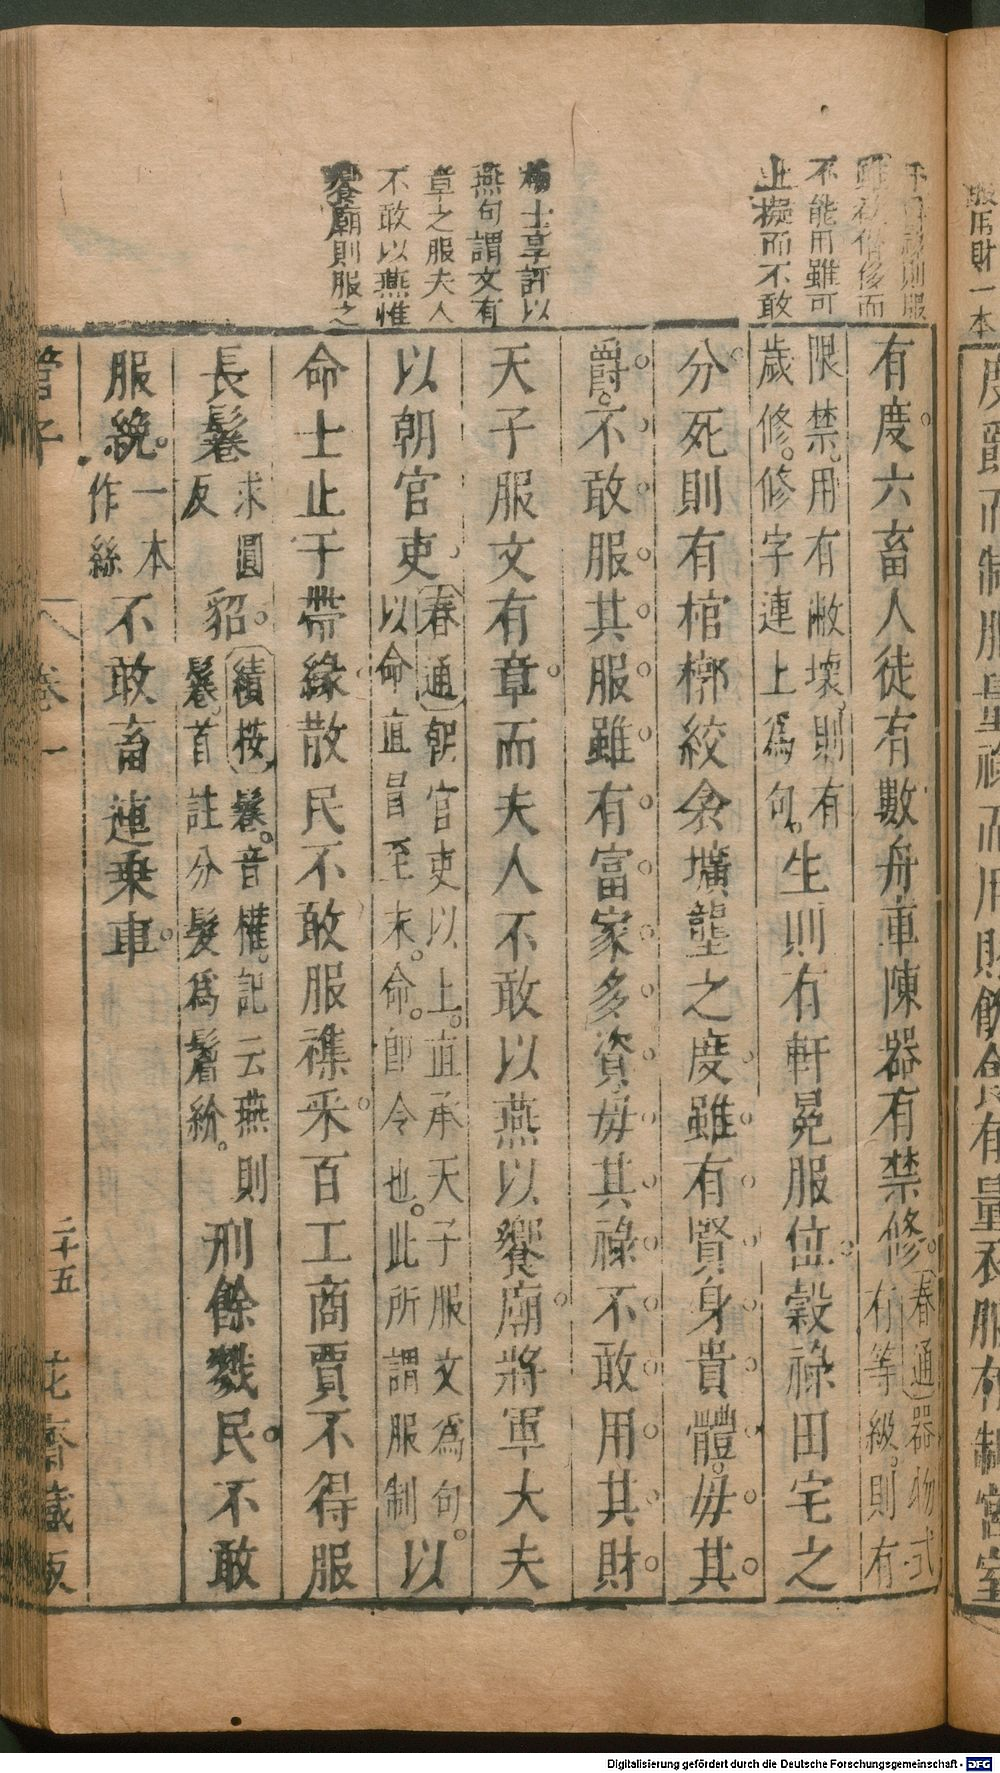 服用財一本
度爵而制服量祿而用財飲食有量衣服有制宮室
不能用雖可
止擬而不敢
楊士享評以
燕句謂文有
章之服夫人
不敢以燕惟
饗廟則服之
有度。六畜人徒有數舟車陳器有禁修。春通器物式
有等級。則有
限禁。用有敝壞。則有
歲修。修字連上爲句。生則有軒冕服位。穀祿田宅之
分。死則有棺槨絞衾壙壟之度。雖有賢身貴體。毋其
爵。不敢服其服。雖有富家多資。毋其祿。不敢用其財。
天子服文有章。而夫人不敢以燕以饗廟。將軍大夫
以朝官吏。春通朝官吏以上。直承天子服文爲句。
以命直冒至末。命。卽令也。此所謂服制以
命士止于帶緣。散民不敢服襍采。百工商賈不得服
長鬈求圓
反貂。績按鬈。音權。記云燕則
鬈首註分髮爲鬌紒。刑餘戮民。不敢
服絻。一本
作絲不敢畜連乘車。
管子
卷一
二十五
花齋藏板
Digitalisierung gefördert durch die Deutsche Forschungsgemeinschaft - DFG